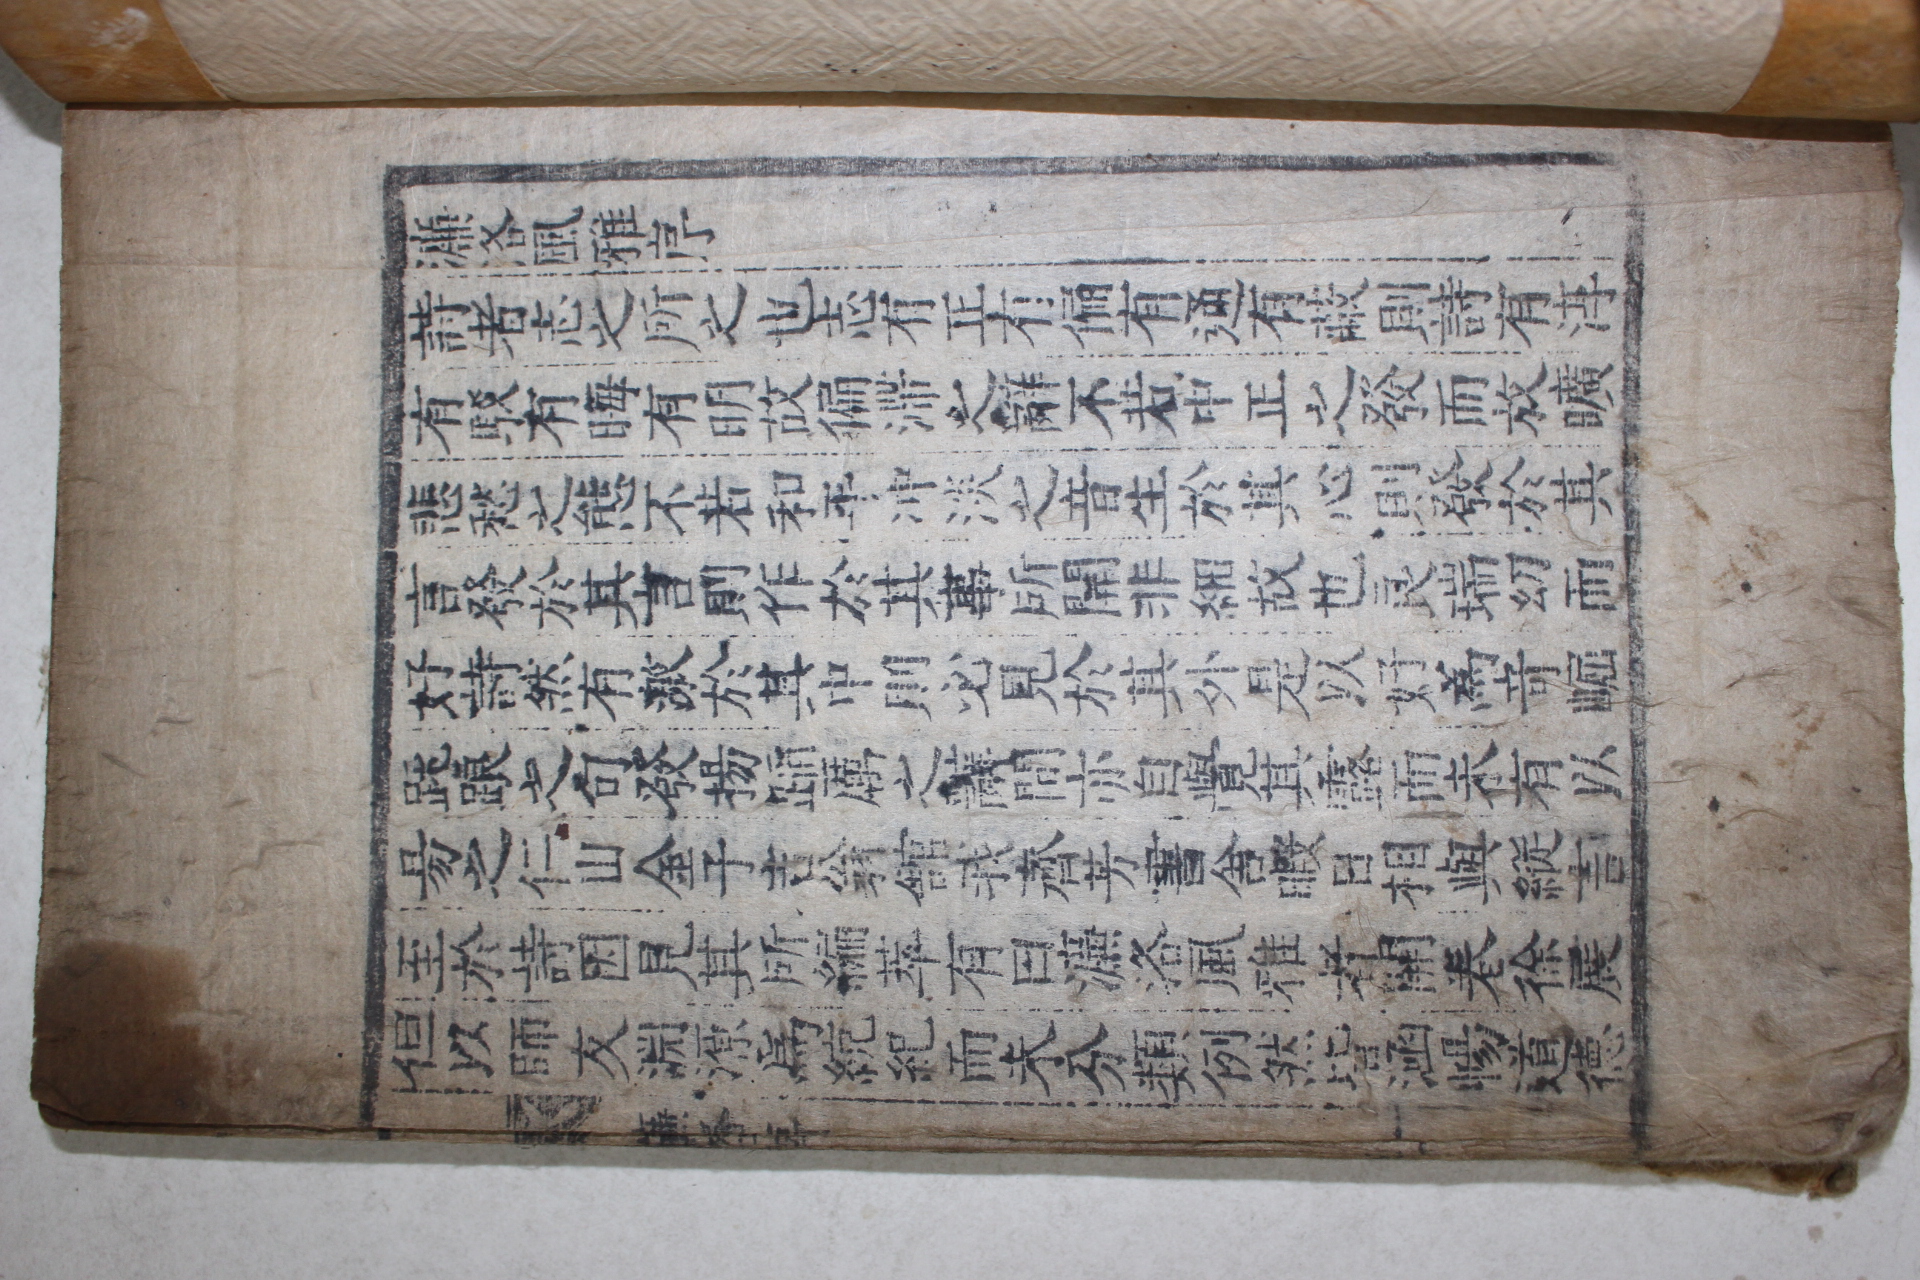 濂洛風雅序
詩者志之所之也志有正有偏有通有蔽則詩有淳
有駁有晦有明故偏滯之辭不若中正之發而放曠
悲愁之態不若和平冲淡之音生於其心則發於其
言發於其言則作於其事所關非細故也良瑞幼而
好詩然有激於其中則必見於其外是以好爲奇崛
跌踉之句發揚蹈厲之辭間亦自覺其露而未有以
易之仁山金子吉翁舘我齊芳書舍暇日相與縱言
至於詩因見其所編萃有曰濂洛風雅者開卷徐展
但以師友淵源爲統紀而未分類例然皆涵暢道德